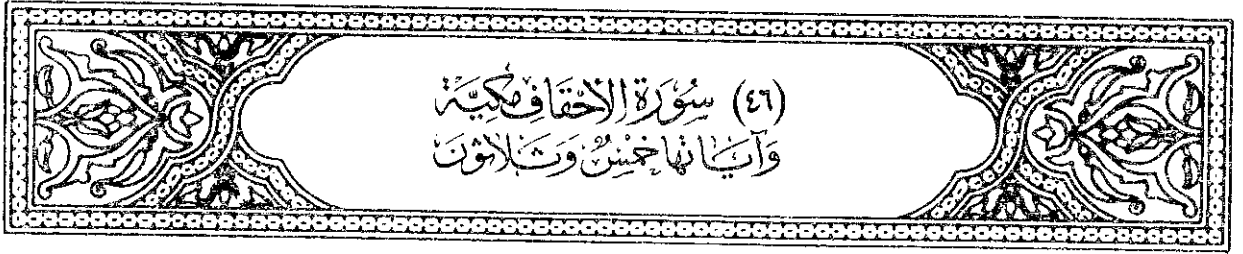 (٤٦) سُورَةُ الأَحْقَافِ مَكِّيَّةٌ
وَآيَاتُهَا خَمْسٌ وَثَلَاثُونَ